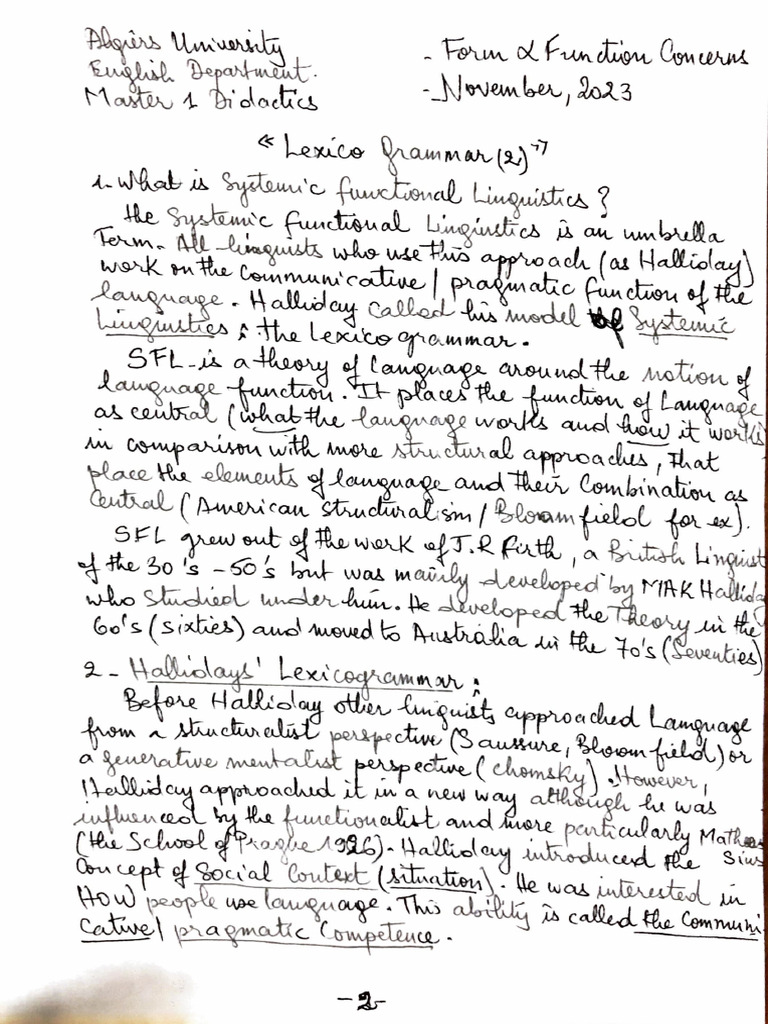 Algiers University
English Department.
Master 1 Didactics
- Form & Function Concerns
- November, 2023
"Lexico Grammar (2)"
1- What is Systemic functional Linguistics?
the Systemic functional Linguistics is an umbrella
Term. All linguists who use this approach (as Halliday)
work on the communicative / pragmatic function of the
language. Halliday called his model of Systemic
Linguistics : the Lexico grammar.
SFL is a theory of language around the notion of
language function. It places the function of Language
as central (what the language works and how it works)
in comparison with more structural approaches, that
place the elements of language and their Combination as
Central (American structuralism / Bloomfield for ex).
SFL grew out of the work of J.R Firth, a British Linguist
of the 30's - 50's but was mainly developed by MAK Halliday
who studied under him. He developed the Theory in the
60's (sixties) and moved to Australia in the 70's (Seventies)
2 - Hallidays' Lexicogrammar :
Before Halliday other linguists approached Language
from a structuralist perspective (Saussure, Bloomfield) or
a generative mentalist perspective (chomsky). However,
Halliday approached it in a new way although he was
influenced by the functionalist and more particularly Mathe
(the School of Prague 1926). Halliday introduced the sius
Concept of Social Context (situation). He was interested in
How people use language. This ability is called the Communi
cative / pragmatic Competence.
-2-